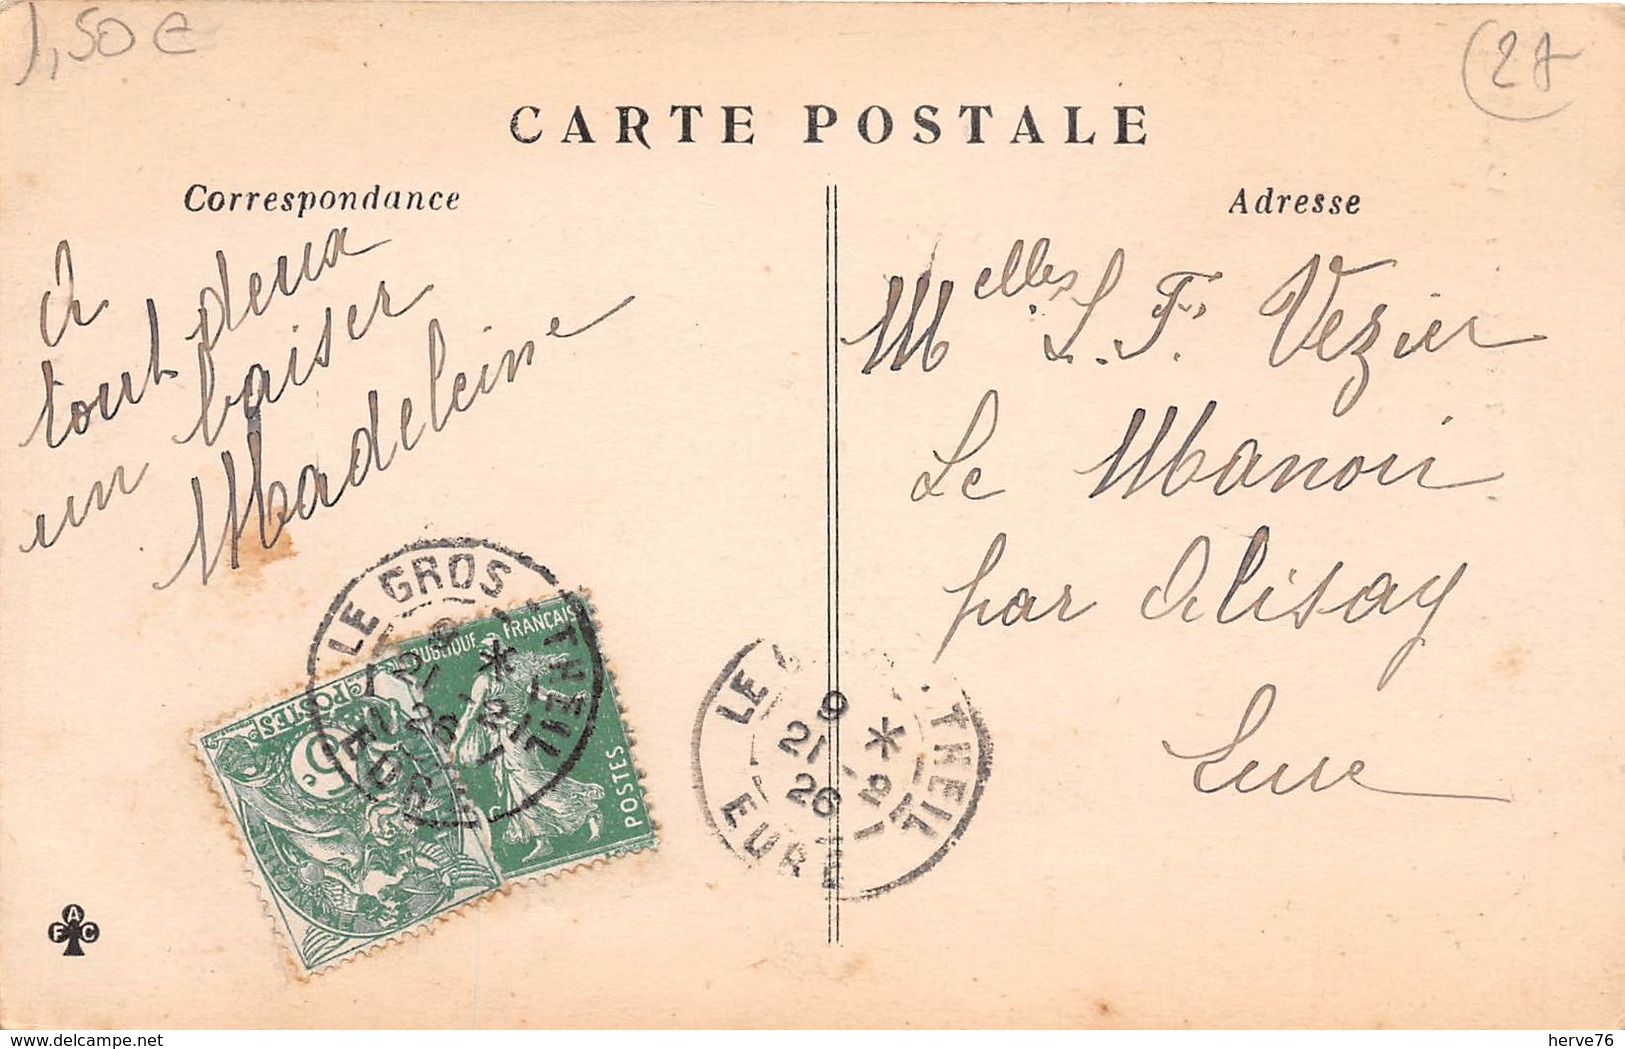 1,50 €
(27
CARTE POSTALE
Correspondance
Adresse
A
tout deux
un baiser
Madeleine
Melles L. F. Vezier
Le Manoir
par Alisay
Eure
LE GROS THEIL
9 *
21 - 2
26
EURE
RÉPUBLIQUE FRANÇAISE
POSTES
POSTES
5 c
LE G THEIL
9 *
21 - 2
26
EURE
A
F C
delcampe.net
herve76